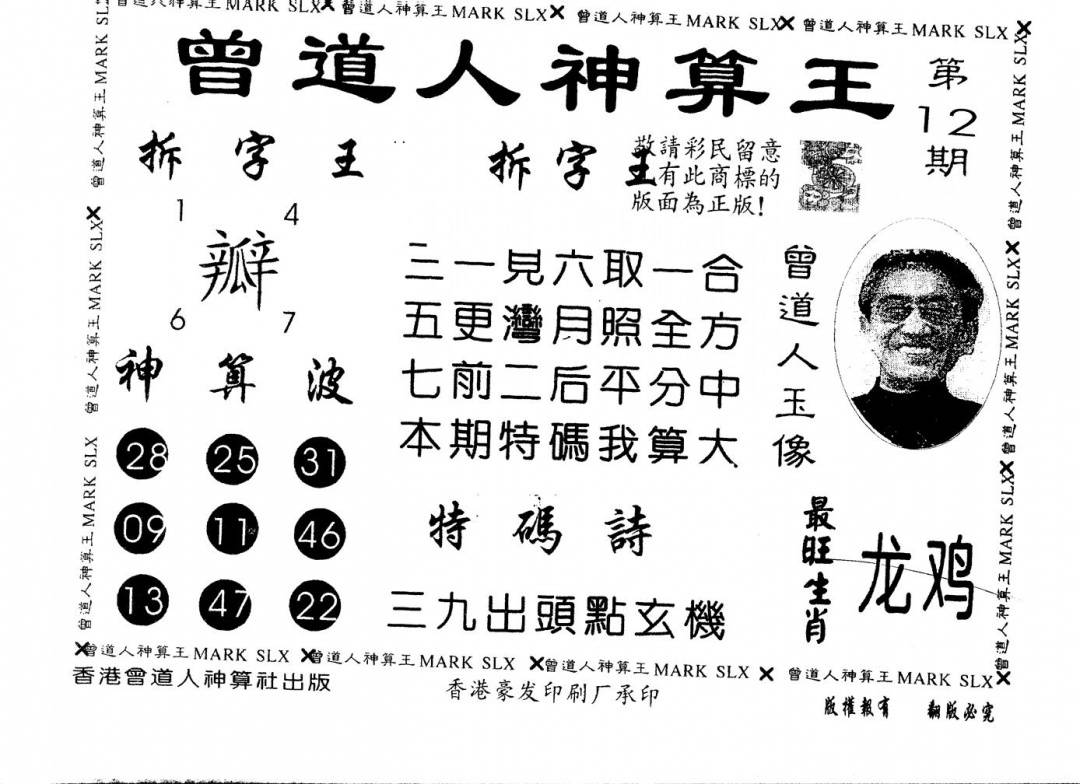 曾道人神算王MARK SLX 曾道人神算王MARK SLX 曾道人神算王MARK SLX 曾道人神算王MARK SLX
曾道人神算王
第
12
期
拆字王
拆字王
敬請彩民留意
有此商標的
版面為正版!
1 4
瓣
6 7
三一見六取一合
五更灣月照全方
七前二后平分中
本期特碼我算大
曾道人玉像
神算波
28 25 31
09 11 46
13 47 22
特碼詩
三九出頭點玄機
最旺生肖
龙鸡
曾道人神算王MARK SLX
曾道人神算王MARK SLX
曾道人神算王MARK SLX
曾道人神算王MARK SLX
曾道人神算王MARK SLX
曾道人神算王MARK SLX
曾道人神算王MARK SLX 曾道人神算王MARK SLX 曾道人神算王MARK SLX 曾道人神算王MARK SLX
香港曾道人神算社出版
香港豪发印刷厂承印
版權報有 翻版必究